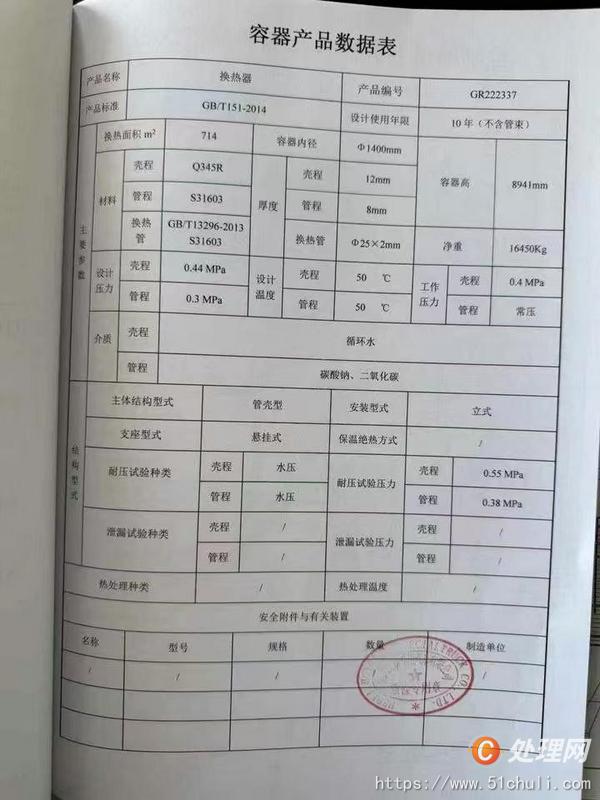 容器产品数据表
产品名称 换热器 产品编号 GR222337
产品标准 GB/T151-2014 设计使用年限 10年（不含管束）
主要参数
换热面积 m² 714 容器内径 Φ1400mm 容器高 8941mm
材料 壳程 Q345R 厚度 壳程 12mm
管程 S31603 管程 8mm
换热管 GB/T13296-2013 S31603 换热管 Φ25×2mm 净重 16450Kg
设计压力 壳程 0.44 MPa 设计温度 壳程 50 ℃ 工作压力 壳程 0.4 MPa
管程 0.3 MPa 管程 50 ℃ 管程 常压
介质 壳程 循环水
管程 碳酸钠、二氧化碳
结构型式
主体结构型式 管壳型 安装型式 立式
支座型式 悬挂式 保温绝热方式 /
耐压试验种类 壳程 水压 耐压试验压力 壳程 0.55 MPa
管程 水压 管程 0.38 MPa
泄漏试验种类 壳程 / 泄漏试验压力 壳程 /
管程 / 管程 /
热处理种类 / 热处理温度 /
安全附件与有关装置
名称 型号 规格 数量 制造单位
/ / / / /
TRUCK CO., LTD.
C 处理网
https://www.51chuli.com